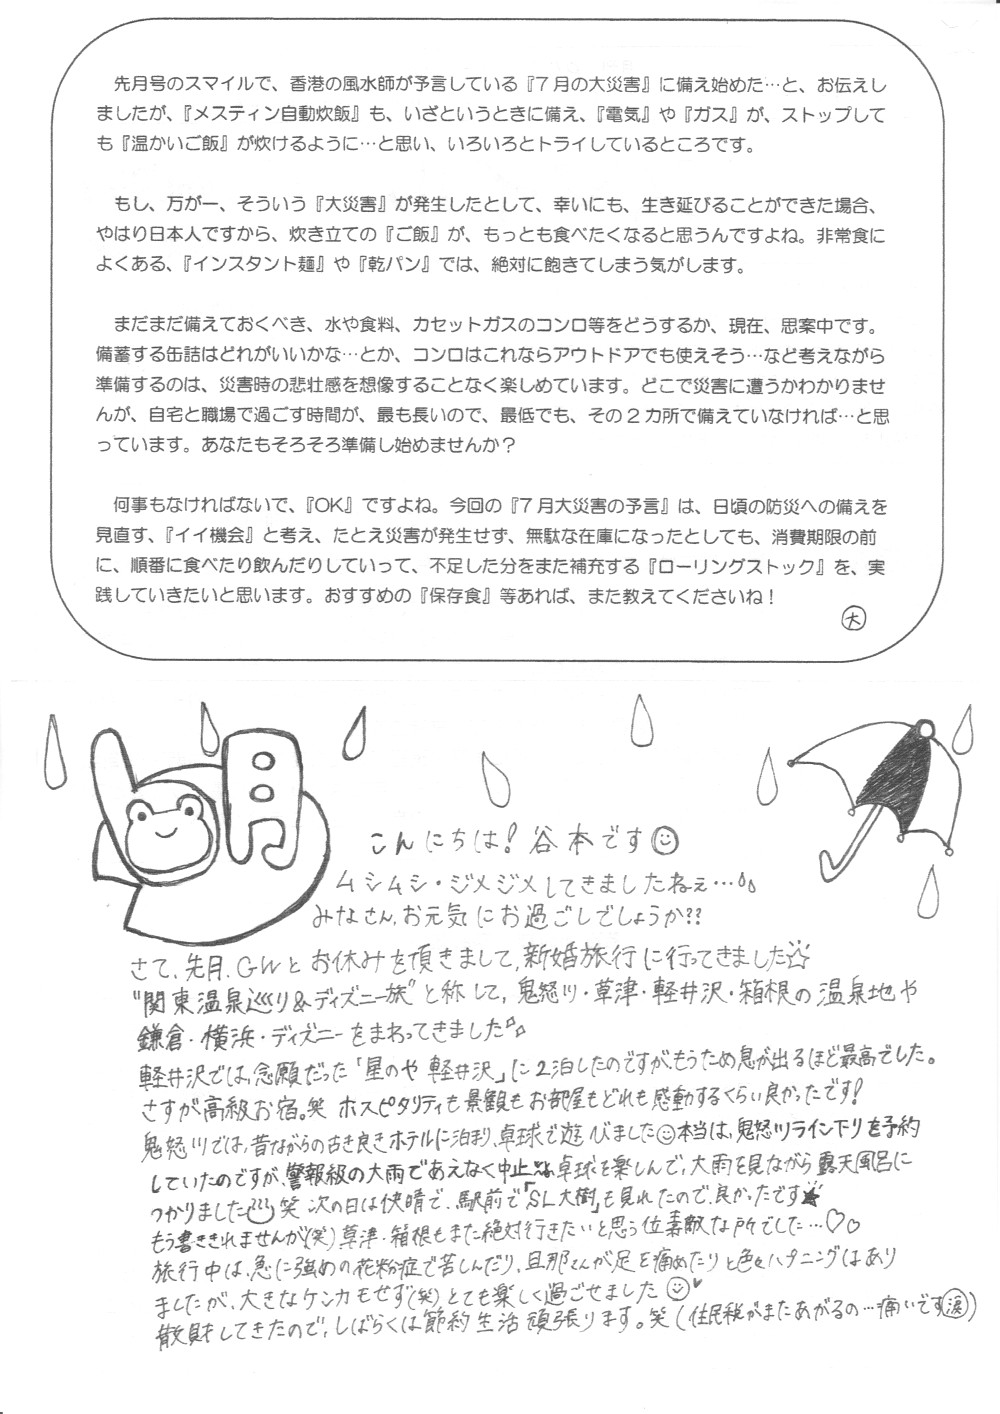 先月号のスマイルで、香港の風水師が予言している『7月の大災害』に備え始めた…と、お伝えし
ましたが、『メスティン自動炊飯』も、いざというときに備え、『電気』や『ガス』が、ストップして
も『温かいご飯』が炊けるように…と思い、いろいろとトライしているところです。
もし、万が一、そういう『大災害』が発生したとして、幸いにも、生き延びることができた場合、
やはり日本人ですから、炊き立ての『ご飯』が、もっとも食べたくなると思うんですよね。非常食に
よくある、『インスタント麺』や『乾パン』では、絶対に飽きてしまう気がします。
まだまだ備えておくべき、水や食料、カセットガスのコンロ等をどうするか、現在、思案中です。
備蓄する缶詰はどれがいいかな…とか、コンロはこれならアウトドアでも使えそう…など考えながら
準備するのは、災害時の悲壮感を想像することなく楽しめています。どこで災害に遭うかわかりませ
んが、自宅と職場で過ごす時間が、最も長いので、最低でも、その2カ所で備えていなければ…と思
っています。あなたもそろそろ準備し始めませんか？
何事もなければないで、『OK』ですよね。今回の『7月大災害の予言』は、日頃の防災への備えを
見直す、『イイ機会』と考え、たとえ災害が発生せず、無駄な在庫になったとしても、消費期限の前
に、順番に食べたり飲んだりしていって、不足した分をまた補充する『ローリングストック』を、実
践していきたいと思います。おすすめの『保存食』等あれば、また教えてくださいね！
大
6月
こんにちは！谷本です☺
ムシムシ・ジメジメしてきましたねぇ…
みなさん、お元気にお過ごしでしょうか??
さて、先月、GWとお休みを頂きまして、新婚旅行に行ってきました☆
"関東温泉巡り&ディズニー旅"と称して、鬼怒川・草津・軽井沢・箱根の温泉地や
鎌倉・横浜・ディズニーをまわってきました♪
軽井沢では、念願だった「星のや 軽井沢」に2泊したのですが、もうため息が出るほど最高でした。
さすが高級お宿。笑 ホスピタリティも景観もお部屋もどれも感動するくらい良かったです!
鬼怒川では、昔ながらの古き良きホテルに泊まり、卓球で遊びました☺本当は、鬼怒川ライン下りを予約
していたのですが、警報級の大雨であえなく中止…卓球を楽しんで、大雨を見ながら露天風呂に
つかりました♨笑 次の日は快晴で、駅前で「SL大樹」も見れたので、良かったです★
もう書ききれませんが(笑)草津・箱根もまた絶対行きたいと思う位素敵な所でした…♡♡
旅行中は、急に強めの花粉症で苦しんだり、旦那さんが足を痛めたりと色々ハプニングはあり
ましたが、大きなケンカもせず(笑)とても楽しく過ごせました☺♥
散財してきたので、しばらくは節約生活頑張ります。笑(住民税がまたあがるの…痛いです涙)